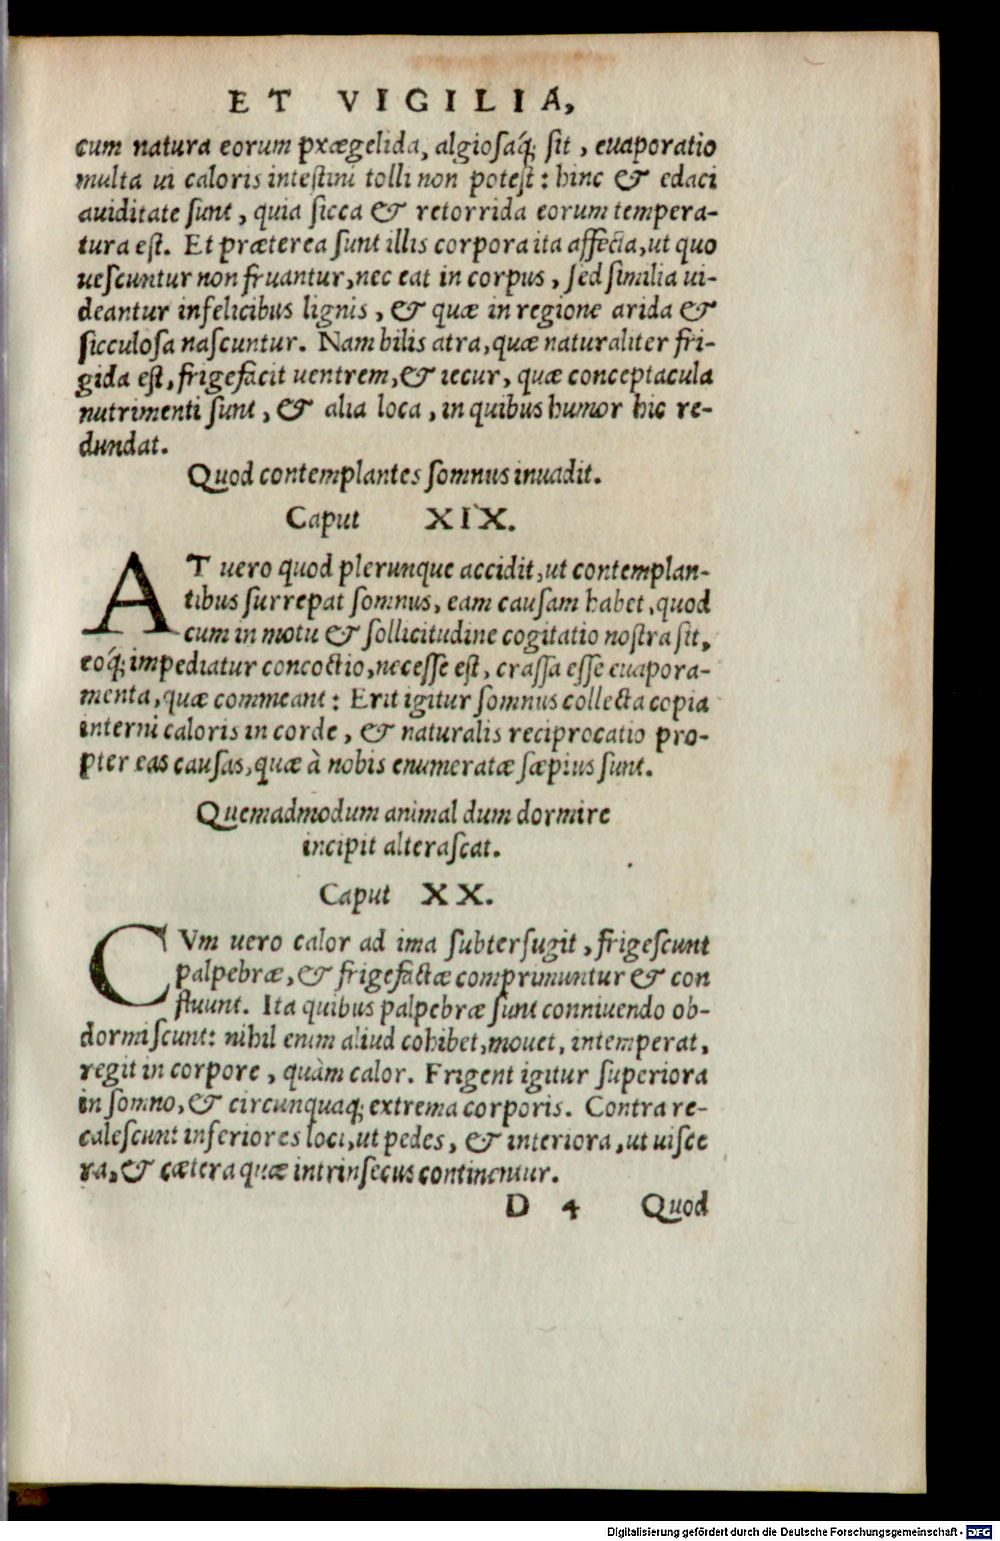 ET VIGILIA,
cum natura eorum præegelida, algiosaq́; sit, euaporatio
multa ui caloris intestini tolli non potest: hinc & edaci
auiditate sunt, quia sicca & retorrida eorum tempera-
tura est. Et præterea sunt illis corpora ita affecta, ut quo
uescuntur non fruantur, nec eat in corpus, sed similia ui-
deantur infelicibus lignis, & quæ in regione arida &
sicculosa nascuntur. Nam bilis atra, quæ naturaliter fri-
gida est, frigefacit uentrem, & iecur, quæ conceptacula
nutrimenti sunt, & alia loca, in quibus humor hic re-
dundat.
Quod contemplantes somnus inuadit.
Caput XIX.
AT uero quod plerunque accidit, ut contemplan-
tibus surrepat somnus, eam causam habet, quod
cum in motu & sollicitudine cogitatio nostra sit,
eoq́; impediatur concoctio, necesse est, crassa esse euapora-
menta, quæ commeant: Erit igitur somnus collecta copia
interni caloris in corde, & naturalis reciprocatio pro-
pter eas causas, quæ à nobis enumeratæ sæpius sunt.
Quemadmodum animal dum dormire
incipit alterascat.
Caput XX.
CVm uero calor ad ima subterfugit, frigescunt
palpebræ, & frigefactæ comprimuntur & con
fluunt. Ita quibus palpebræ sunt conniuendo ob-
dormiscunt: nihil enim aliud cohibet, mouet, intemperat,
regit in corpore, quàm calor. Frigent igitur superiora
in somno, & circunquaq; extrema corporis. Contra re-
calescunt inferiores loci, ut pedes, & interiora, ut uisce
ra, & cætera quæ intrinsecus continentur.
D 4 Quod
Digitalisierung gefördert durch die Deutsche Forschungsgemeinschaft - DFG